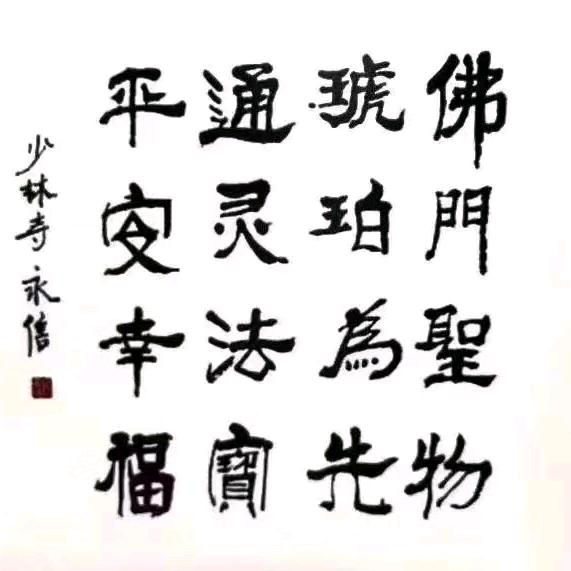 佛門聖物
琥珀為先
通灵法寶
平安幸福
少林寺永信